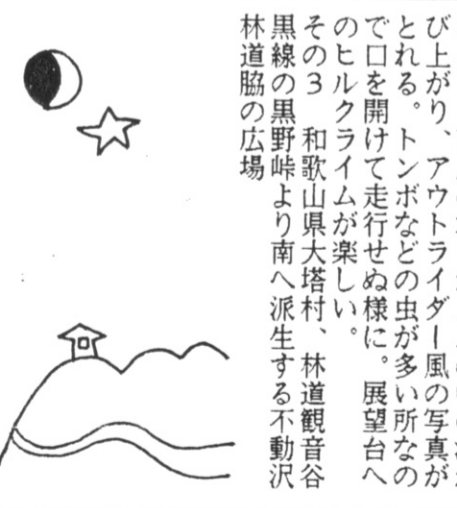 び上がり、アウトライダー風の写真が
とれる。トンボなどの虫が多い所なの
で口を開けて走行せぬ様に。展望台へ
のヒルクライムが楽しい。
その3　和歌山県大塔村、林道観音谷
黒線の黒野峠より南へ派生する不動沢
林道脇の広場